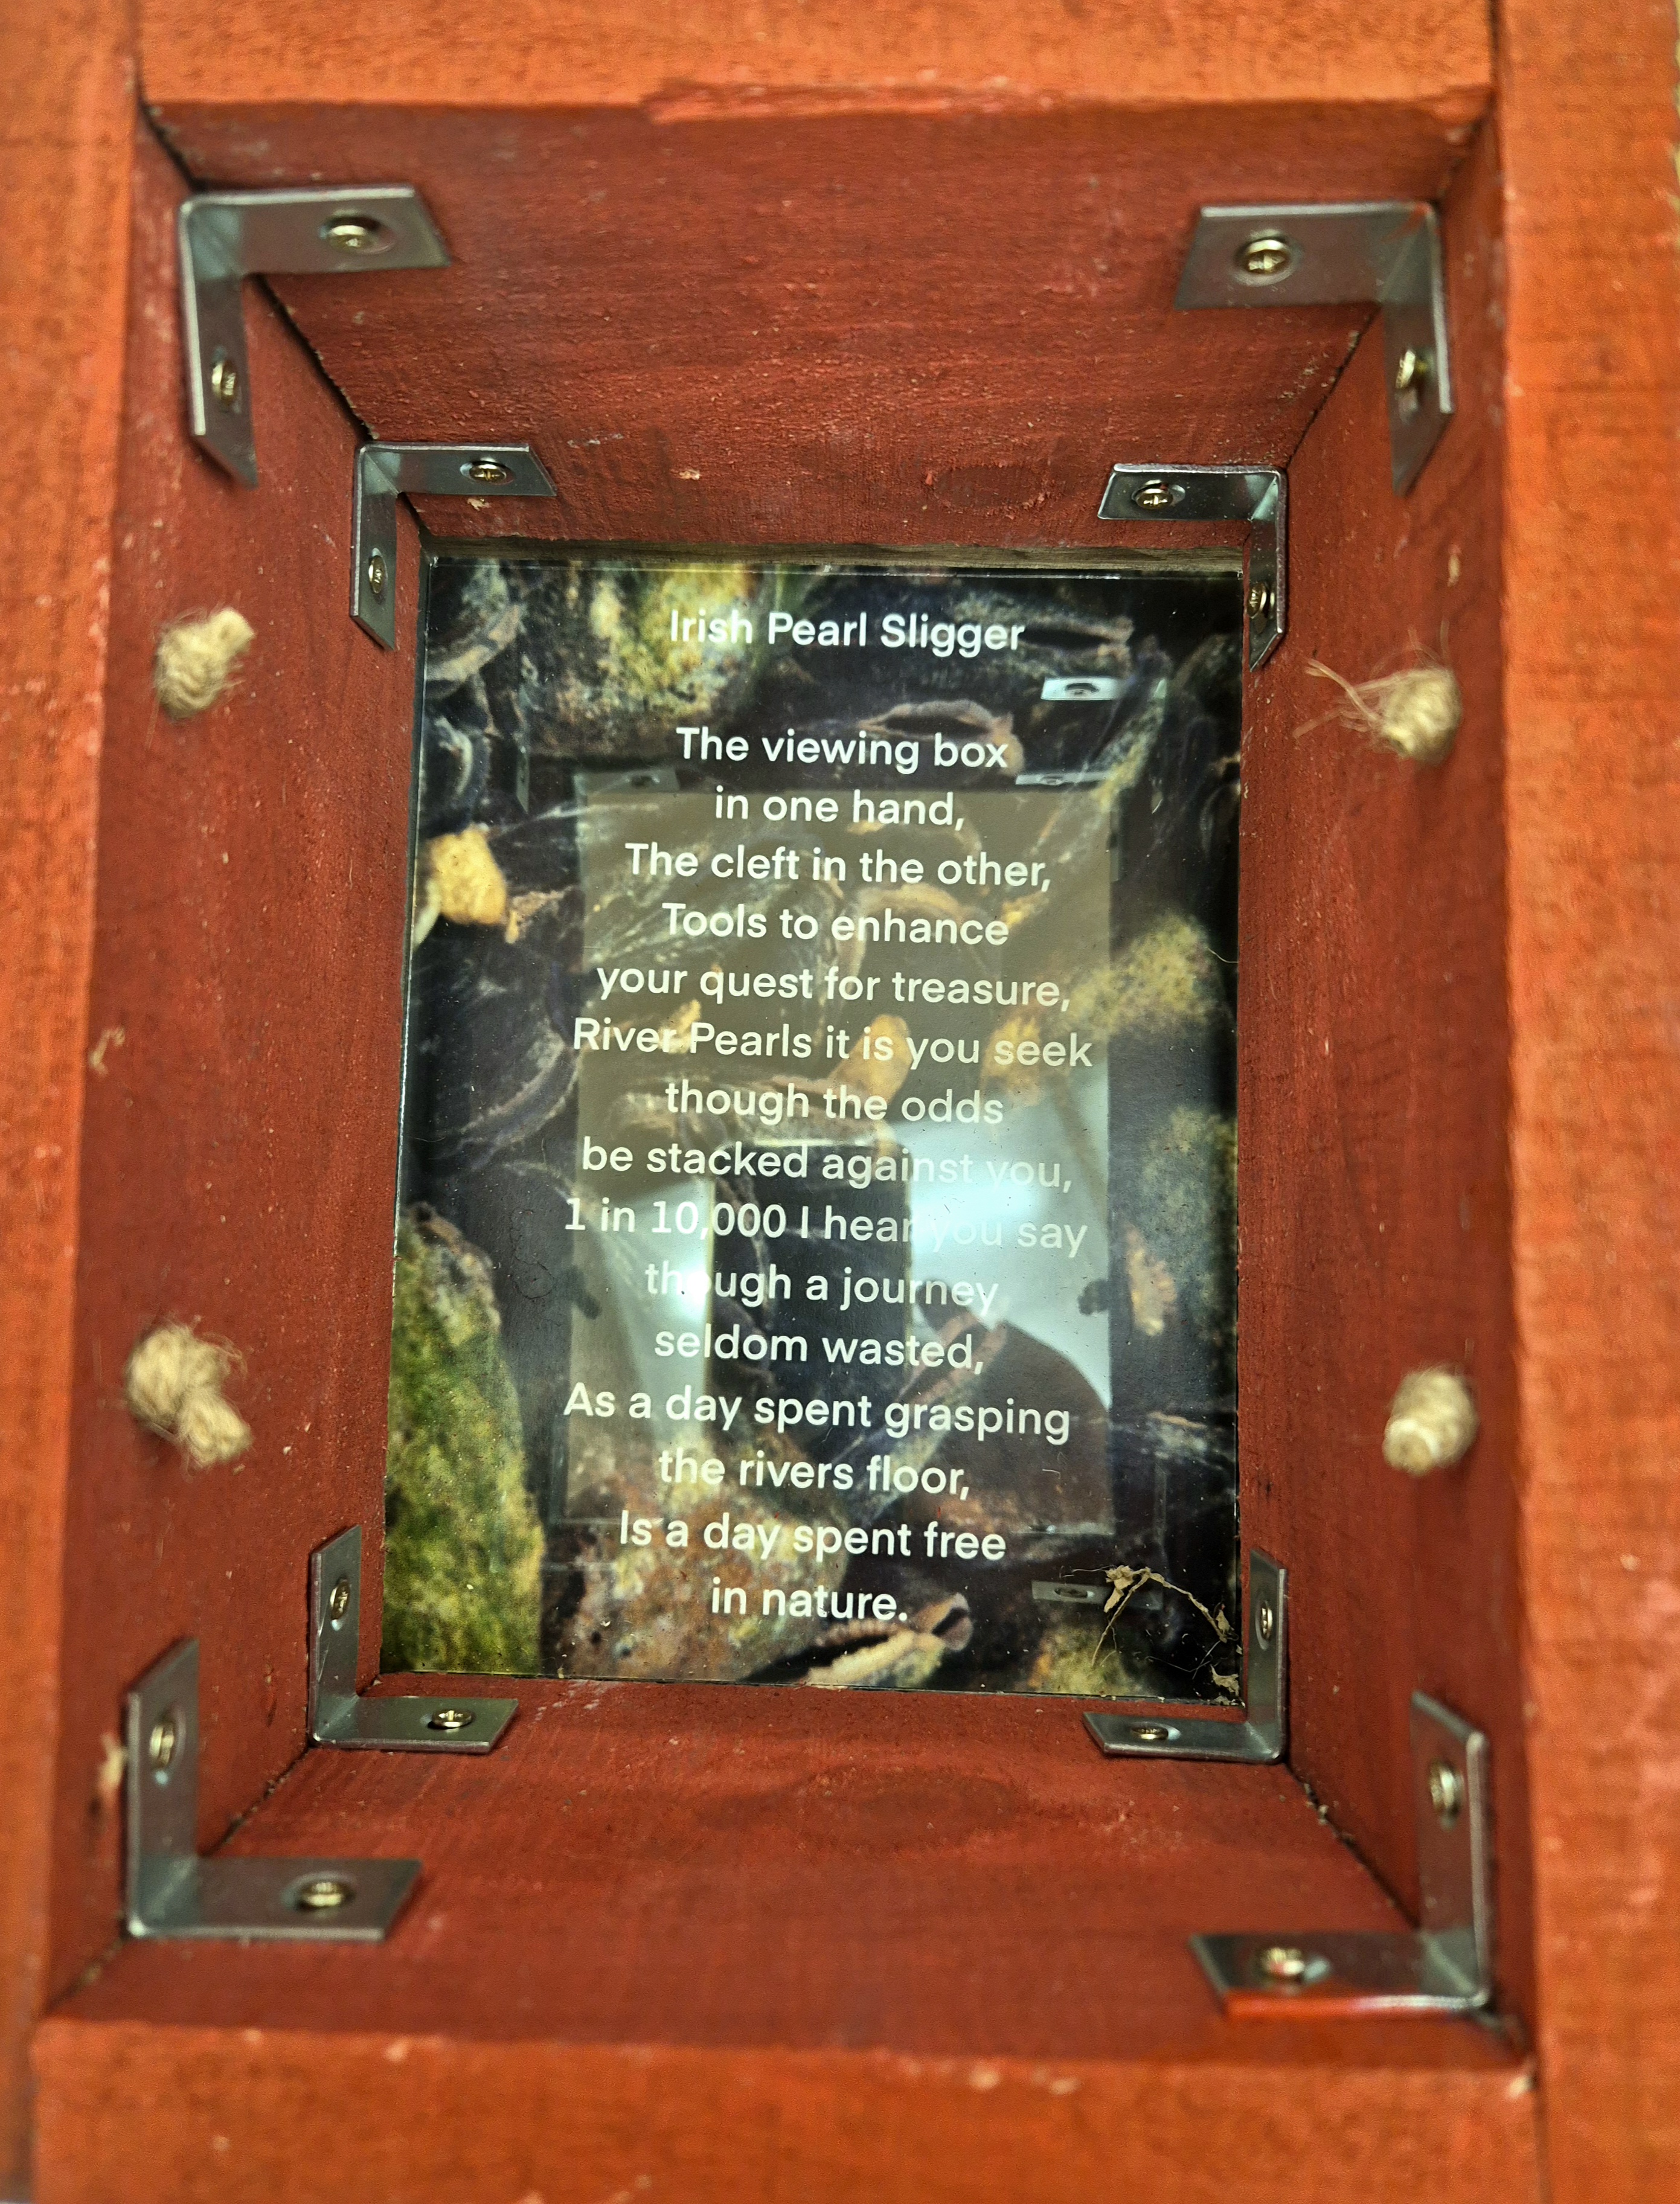 Irish Pearl Sligger
The viewing box
in one hand,
The cleft in the other,
Tools to enhance
your quest for treasure,
River Pearls it is you seek
though the odds
be stacked against you,
1 in 10,000 I hear you say
though a journey
seldom wasted,
As a day spent grasping
the rivers floor,
Is a day spent free
in nature.